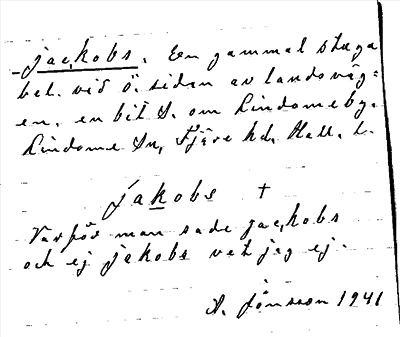 jac,kobs. En gammal stuga
bel. vid ö. sidan av landsväg-
en, en bit S. om Lindomeby.
Lindome Sn, Fjäre hd, Hall. l.
jakobs +
Varför man sade jac,kobs
och ej jakobs vet jag ej.
A. Jönsson 1941